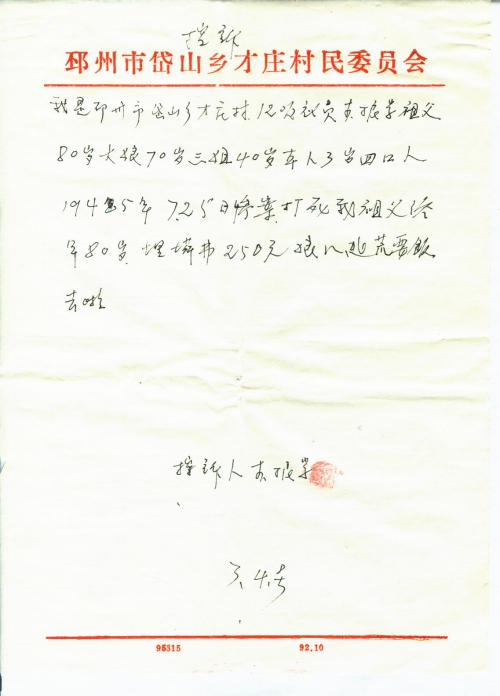 控诉
邳州市岱山乡才庄村民委员会
我是邳州市岱山乡才庄村12队 员 祖父
80岁大娘70岁三姐40岁本人3岁四口人
1945年7.25日惨案.打死我祖父
年80岁.埋葬费250元娘 逃荒要饭
去啦
控诉人
95315 92.10